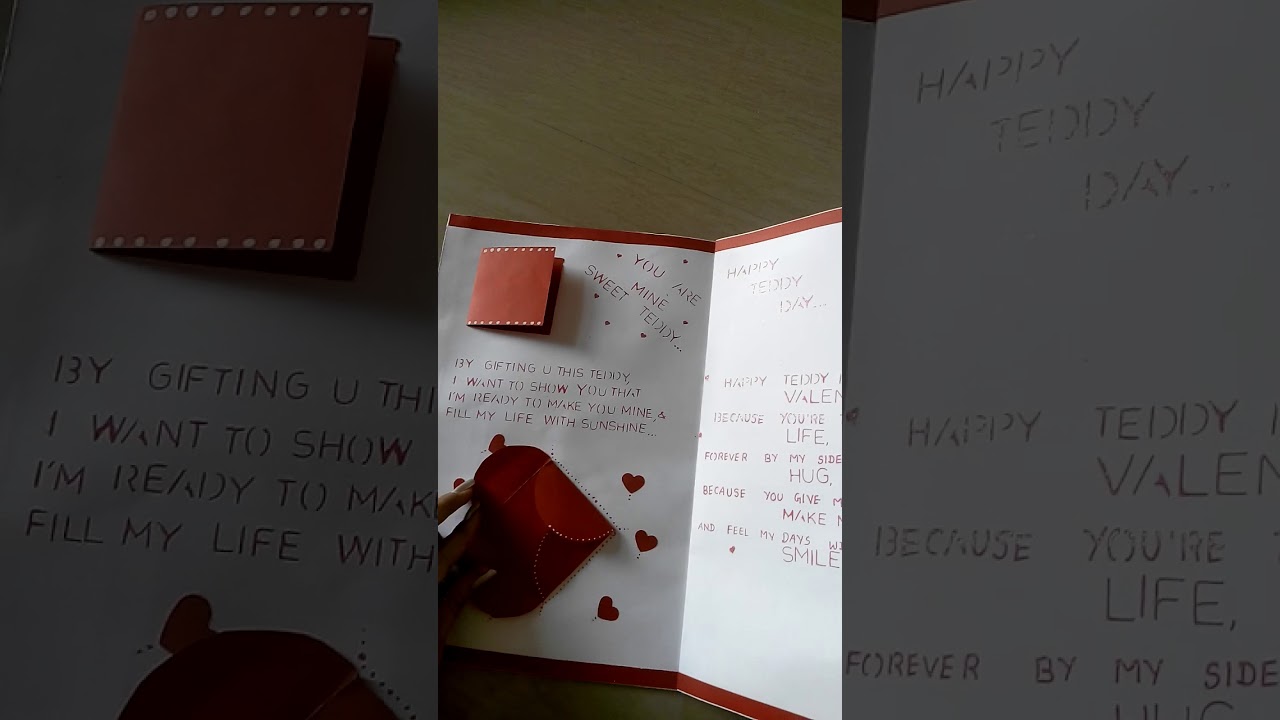 YOU ARE
MINE
SWEET TEDDY...
BY GIFTING U THIS TEDDY,
I WANT TO SHOW YOU THAT
I'M READY TO MAKE YOU MINE, &
FILL MY LIFE WITH SUNSHINE...
HAPPY
TEDDY
DAY...
HAPPY TEDDY
VALEN
BECAUSE YOU'RE
LIFE,
FOREVER BY MY SIDE
HUG,
BECAUSE YOU GIVE M
MAKE
AND FEEL MY DAYS WI
SMILE
BY GIFTING U THI
I WANT TO SHOW
I'M READY TO MAK
FILL MY LIFE WITH
HAPPY
TEDDY
DAY...
HAPPY TEDDY
VALEN
BECAUSE YOU'RE
LIFE,
FOREVER BY MY SIDE
HUG